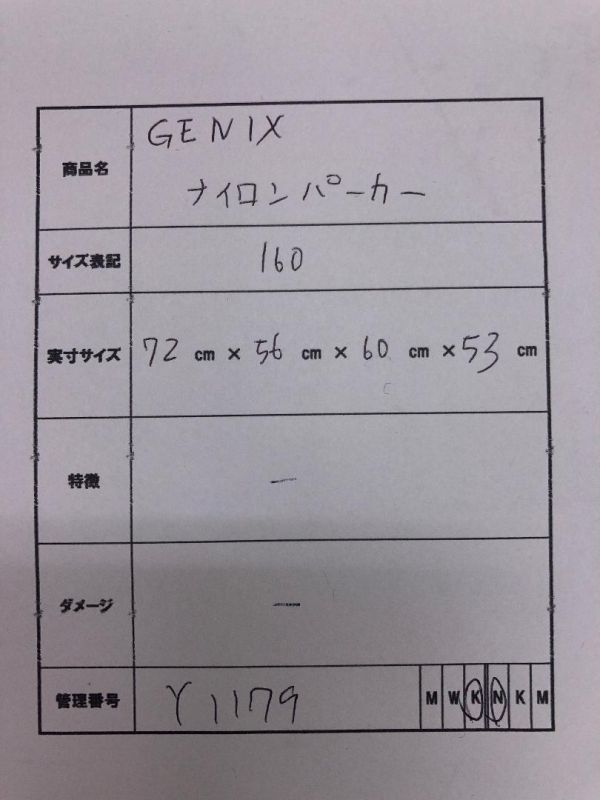 商品名 GENIX
ナイロンパーカー
サイズ表記 160
実寸サイズ 72 cm × 56 cm × 60 cm × 53 cm
特徴 ー
ダメージ ー
管理番号 Y1179 M W K N K M